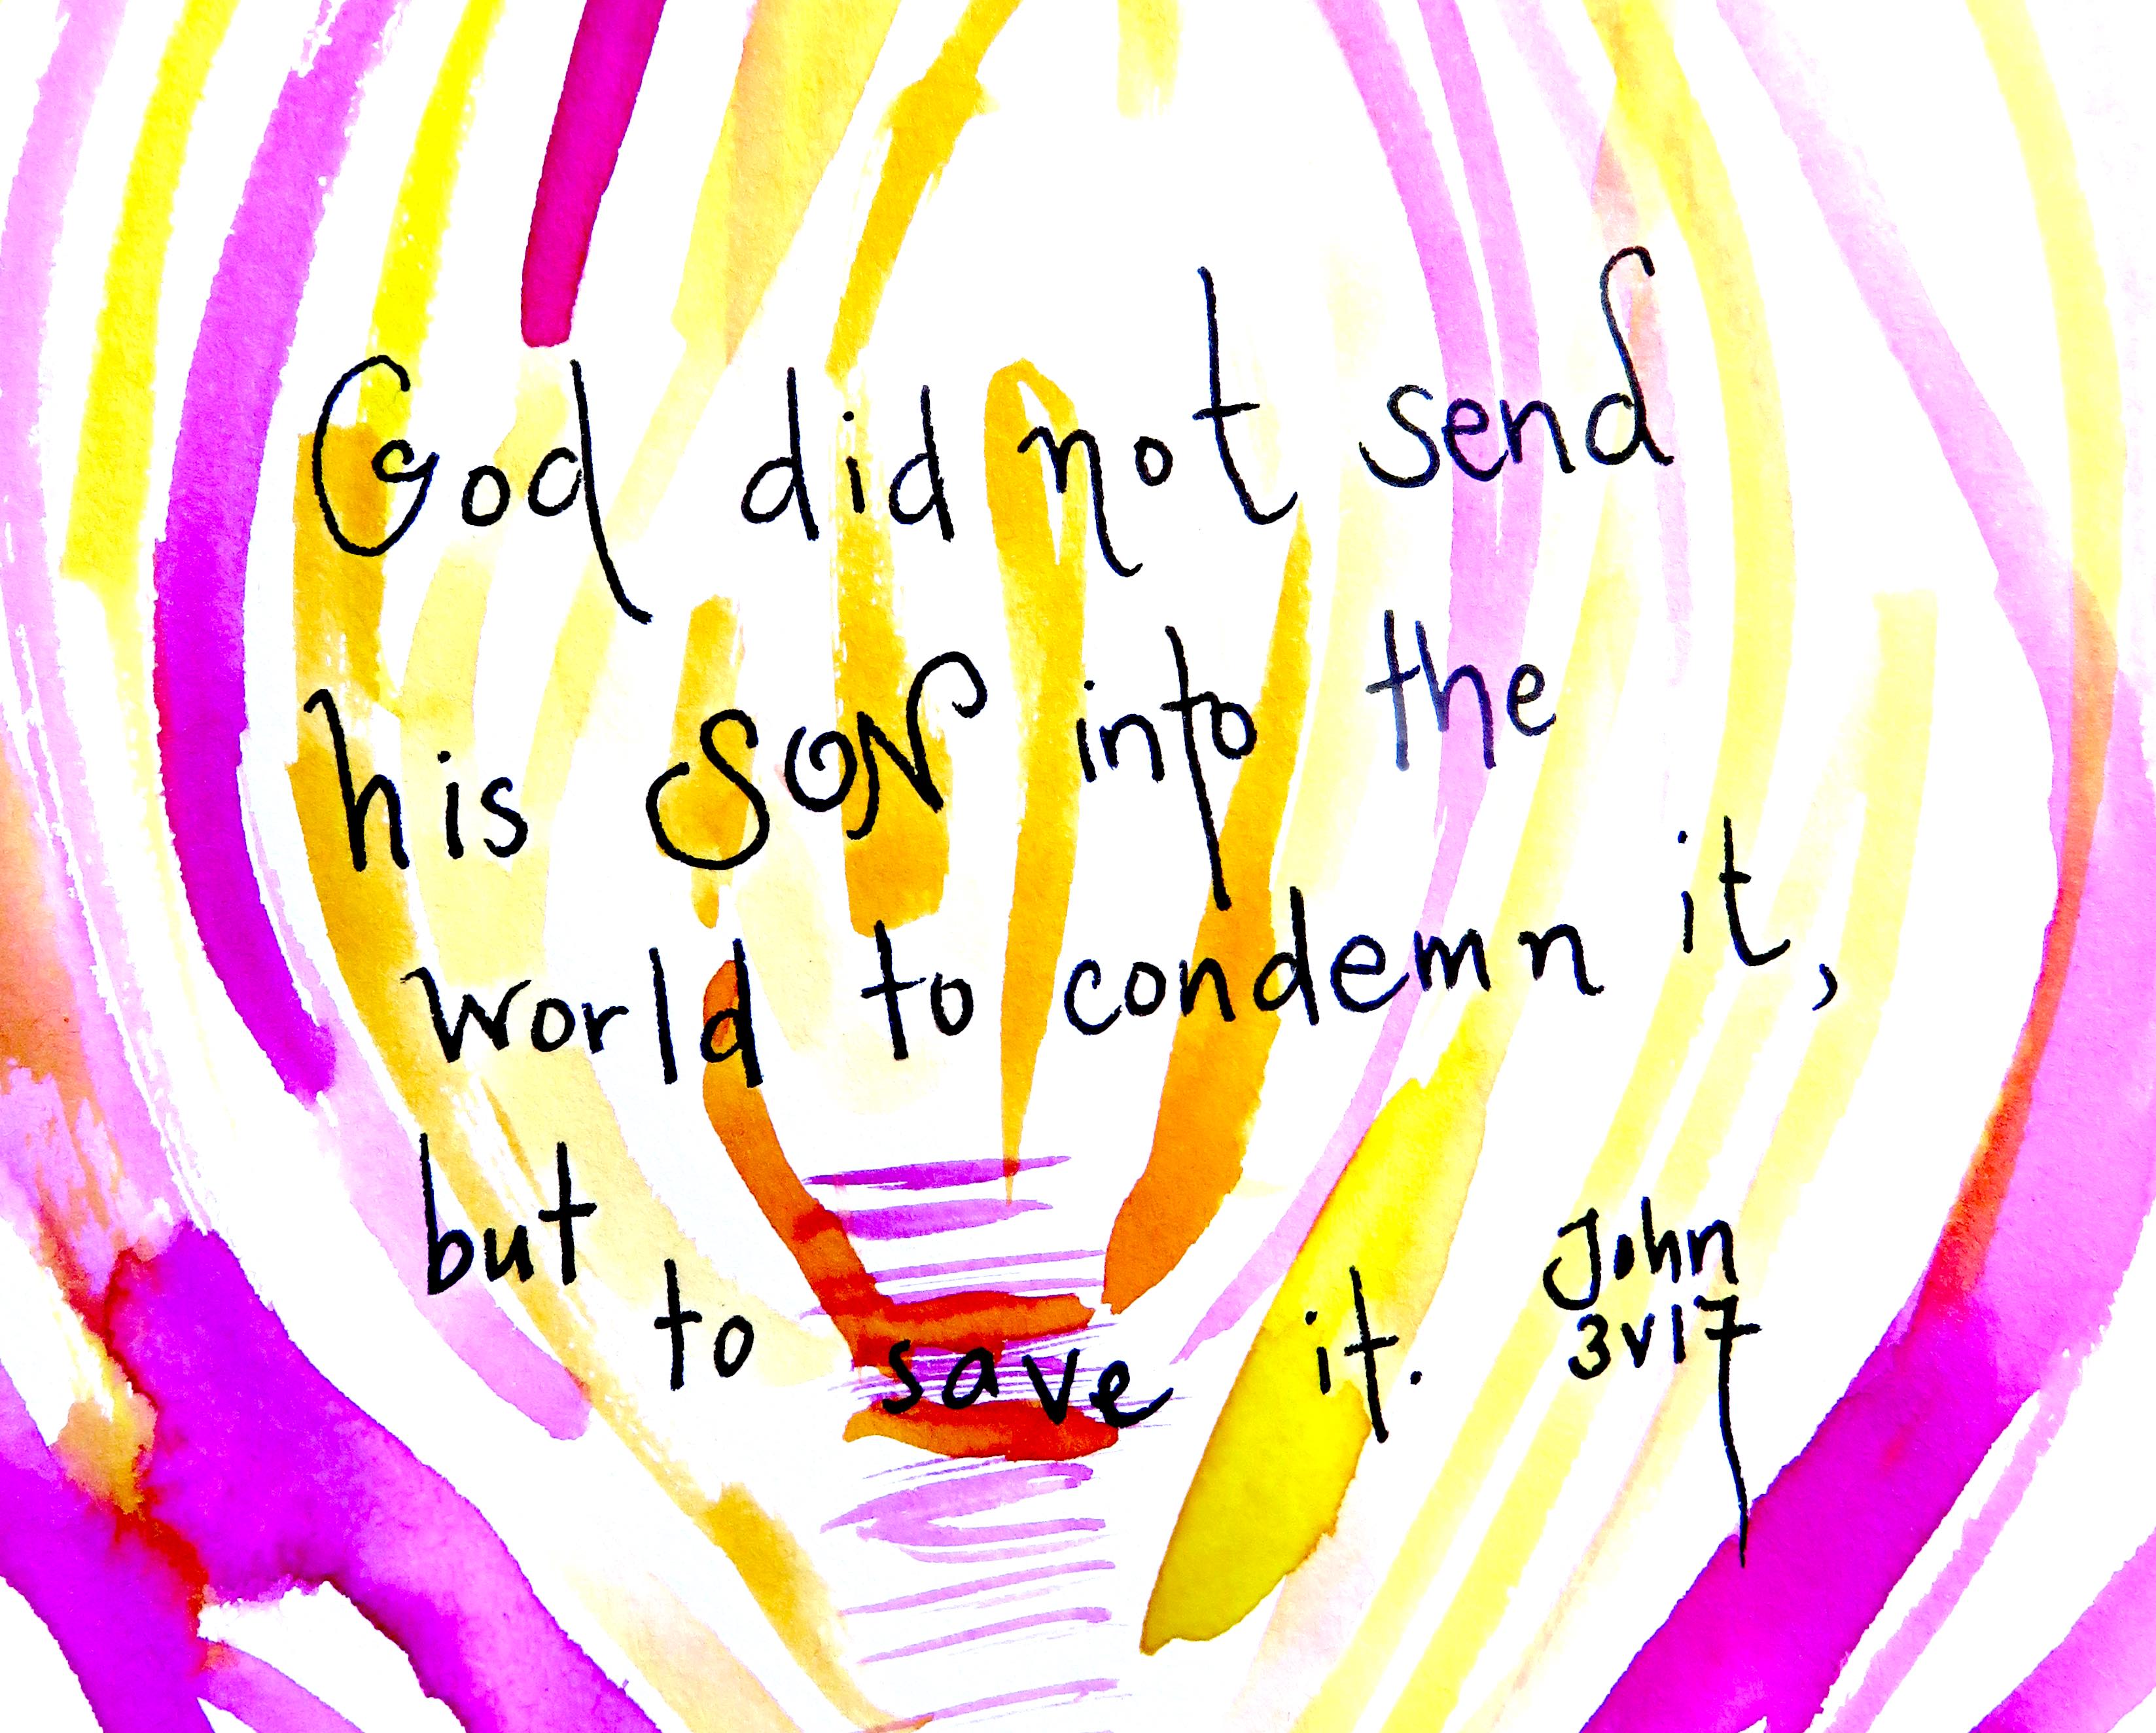 God did not send
his SON into the
world to condemn it,
but to save it.
John
3v17